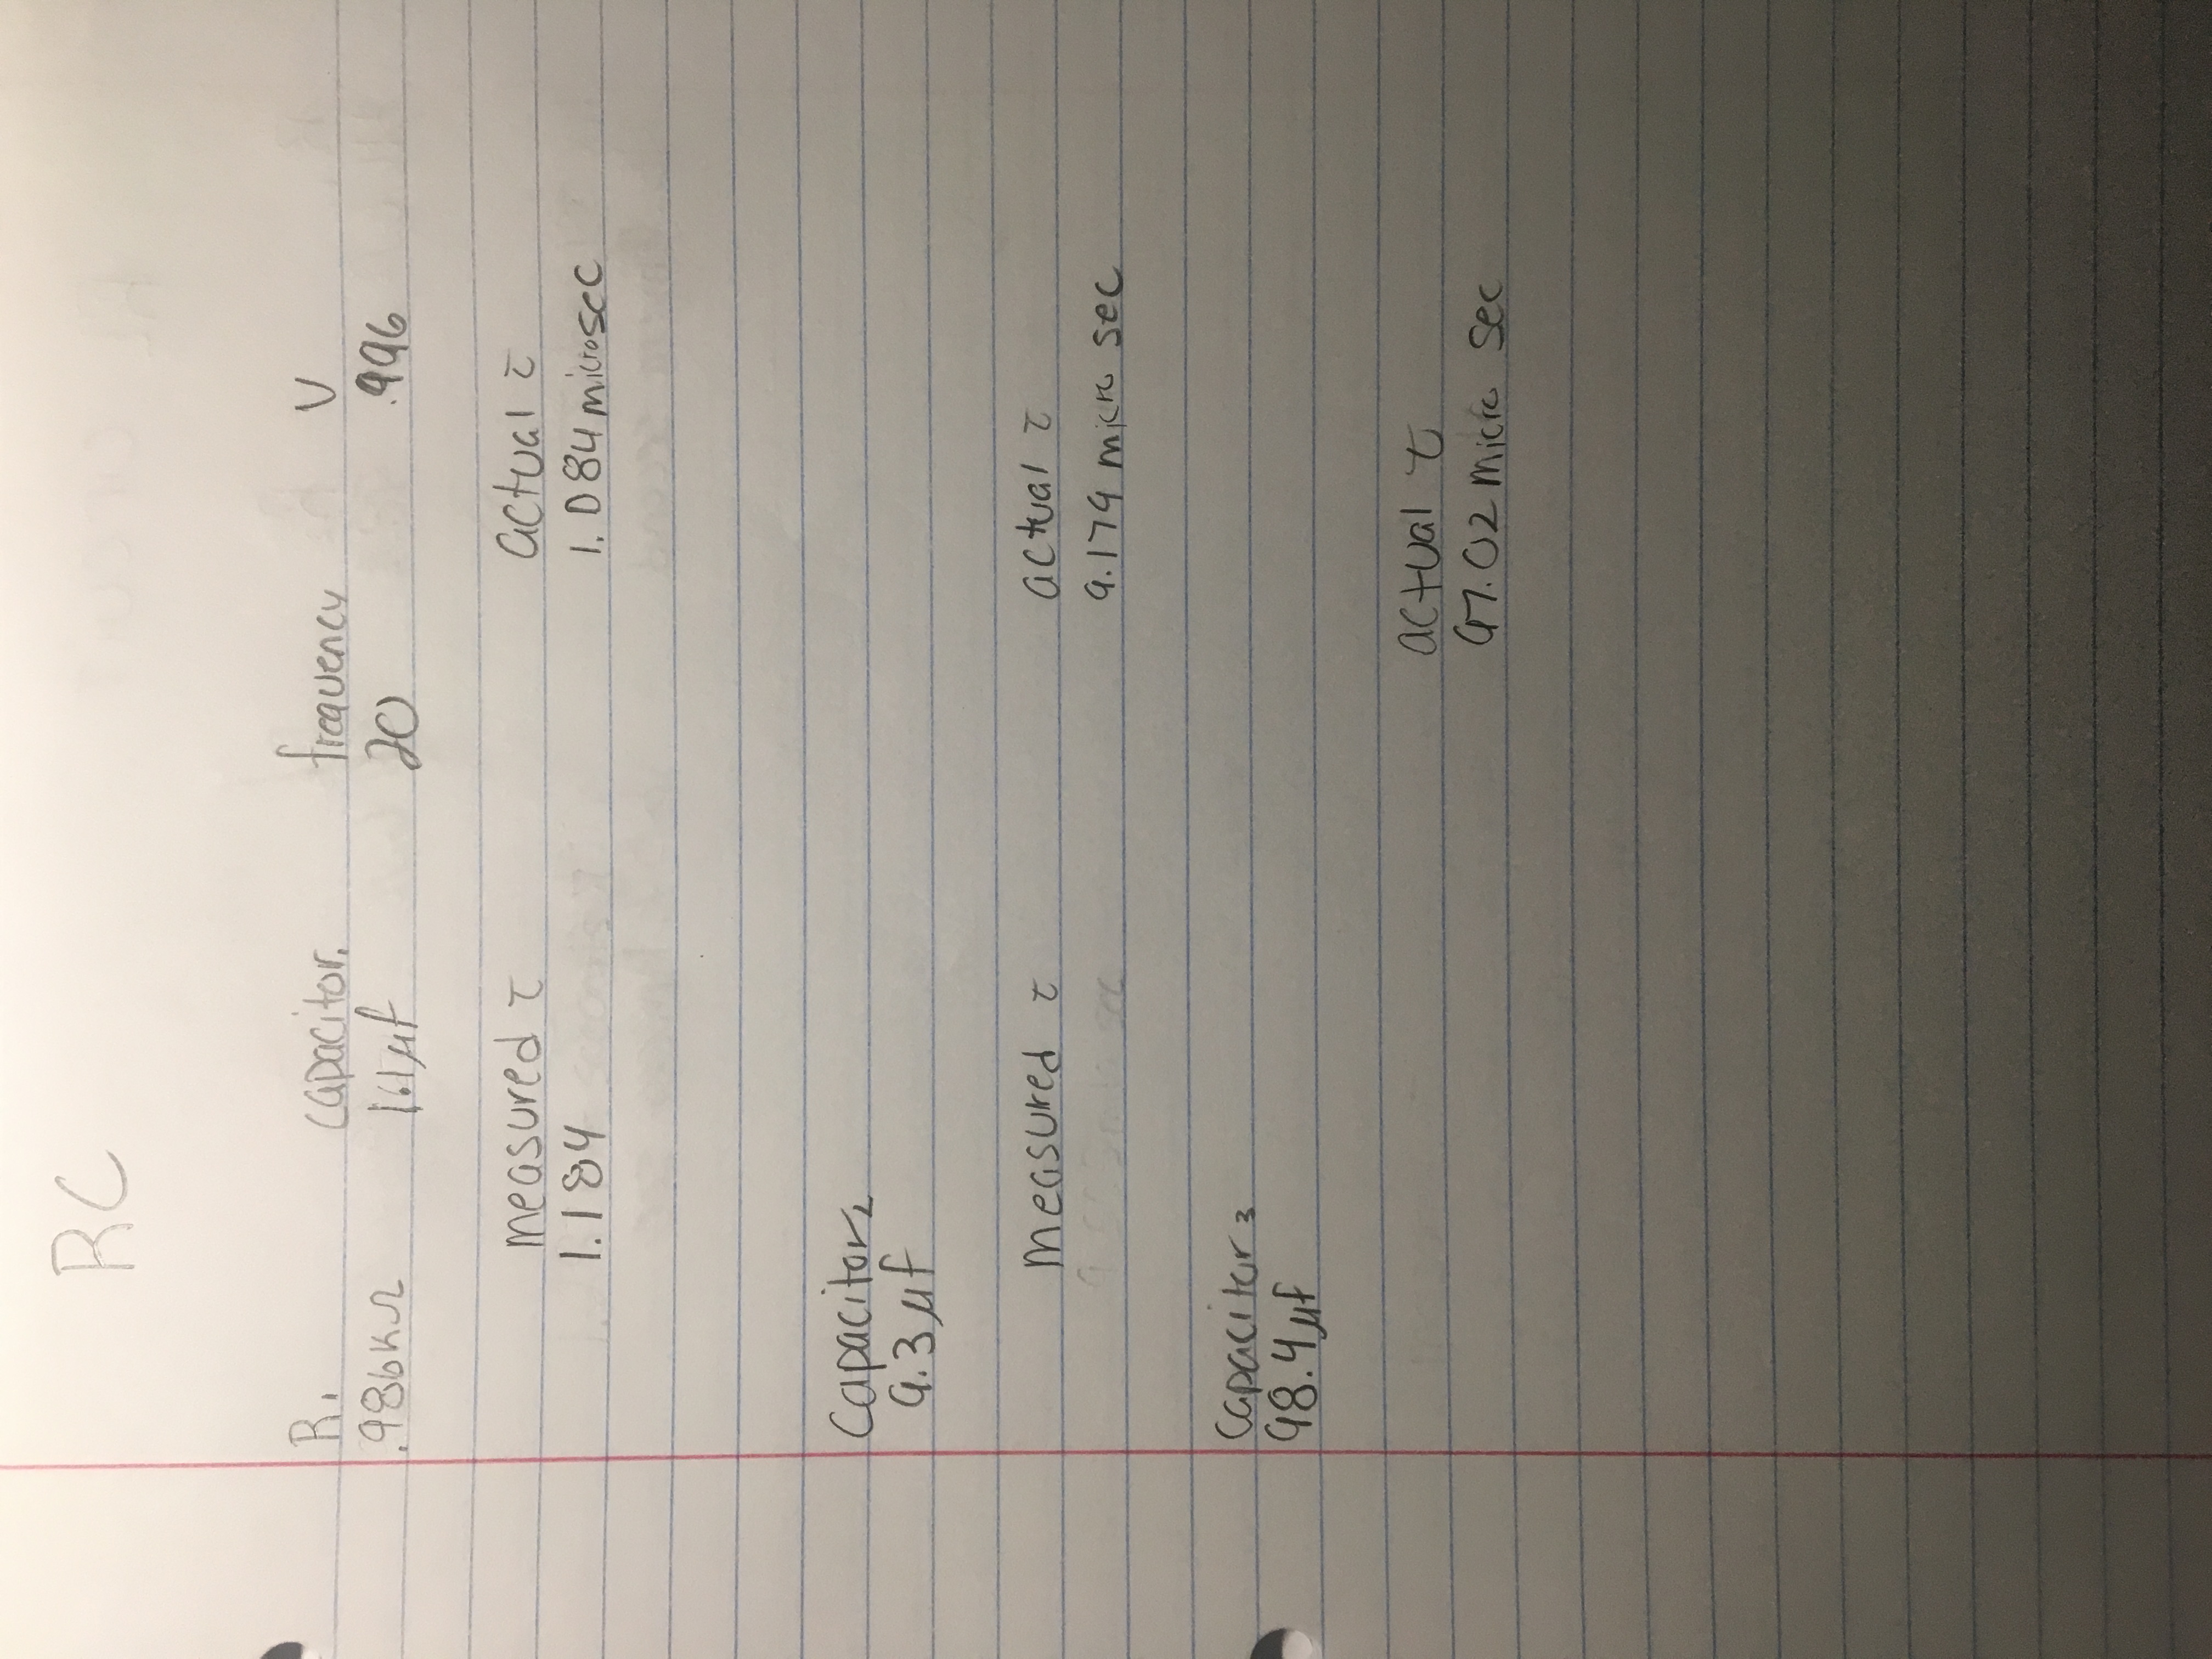 RC
R₁ capacitor₁ frequency V
.986kΩ 1.1µf 20 .996
measured τ actual τ
1.184 1.084 microsec
Capacitor₂
9.3µf
measured τ actual τ
9.179 micro sec
Capacitor₃
98.4µf
actual τ
97.02 micro sec